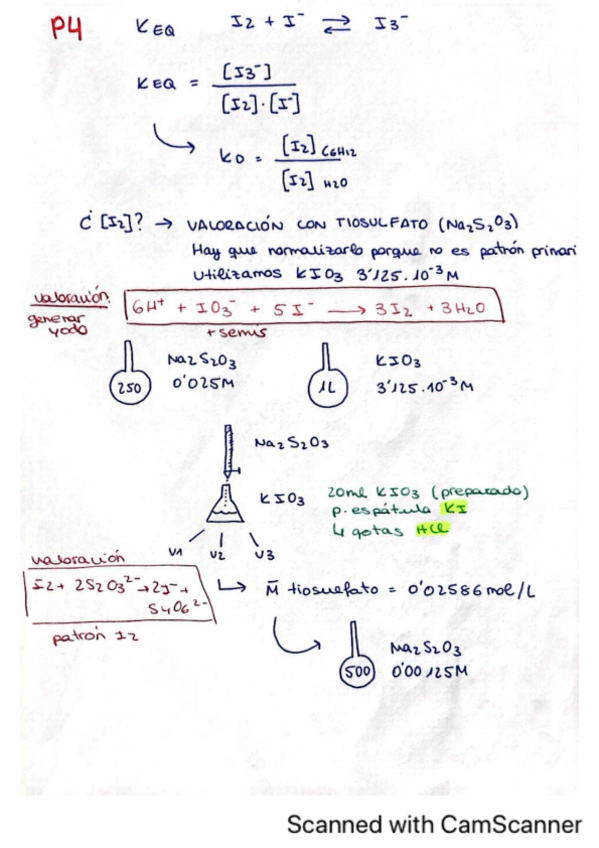 P4 KEQ I2 + I⁻ ⇄ I3⁻
KEQ = [I3⁻] / [I2]·[I⁻]
KD = [I2] C6H12 / [I2] H2O
¿[I2]? → VALORACIÓN CON TIOSULFATO (Na2S2O3)
Hay que normalizarlo porque no es patrón primari
Utilizamos KIO3 3'125.10⁻³M
valoración:
generar yodo
6H⁺ + IO3⁻ + 5I⁻ → 3I2 + 3H2O
+ semis
250 Na2S2O3 0'025M
1L KIO3 3'125.10⁻³M
Na2S2O3
KIO3
20ml KIO3 (preparado)
p. espátula KI
4 gotas HCl
V1 V2 V3
valoración
I2 + 2S2O3²⁻ → 2I⁻ + S4O6²⁻
patrón I2
↳ M̄ tiosulfato = 0'02586 mol/L
500 Na2S2O3 0'00125M
Scanned with CamScanner